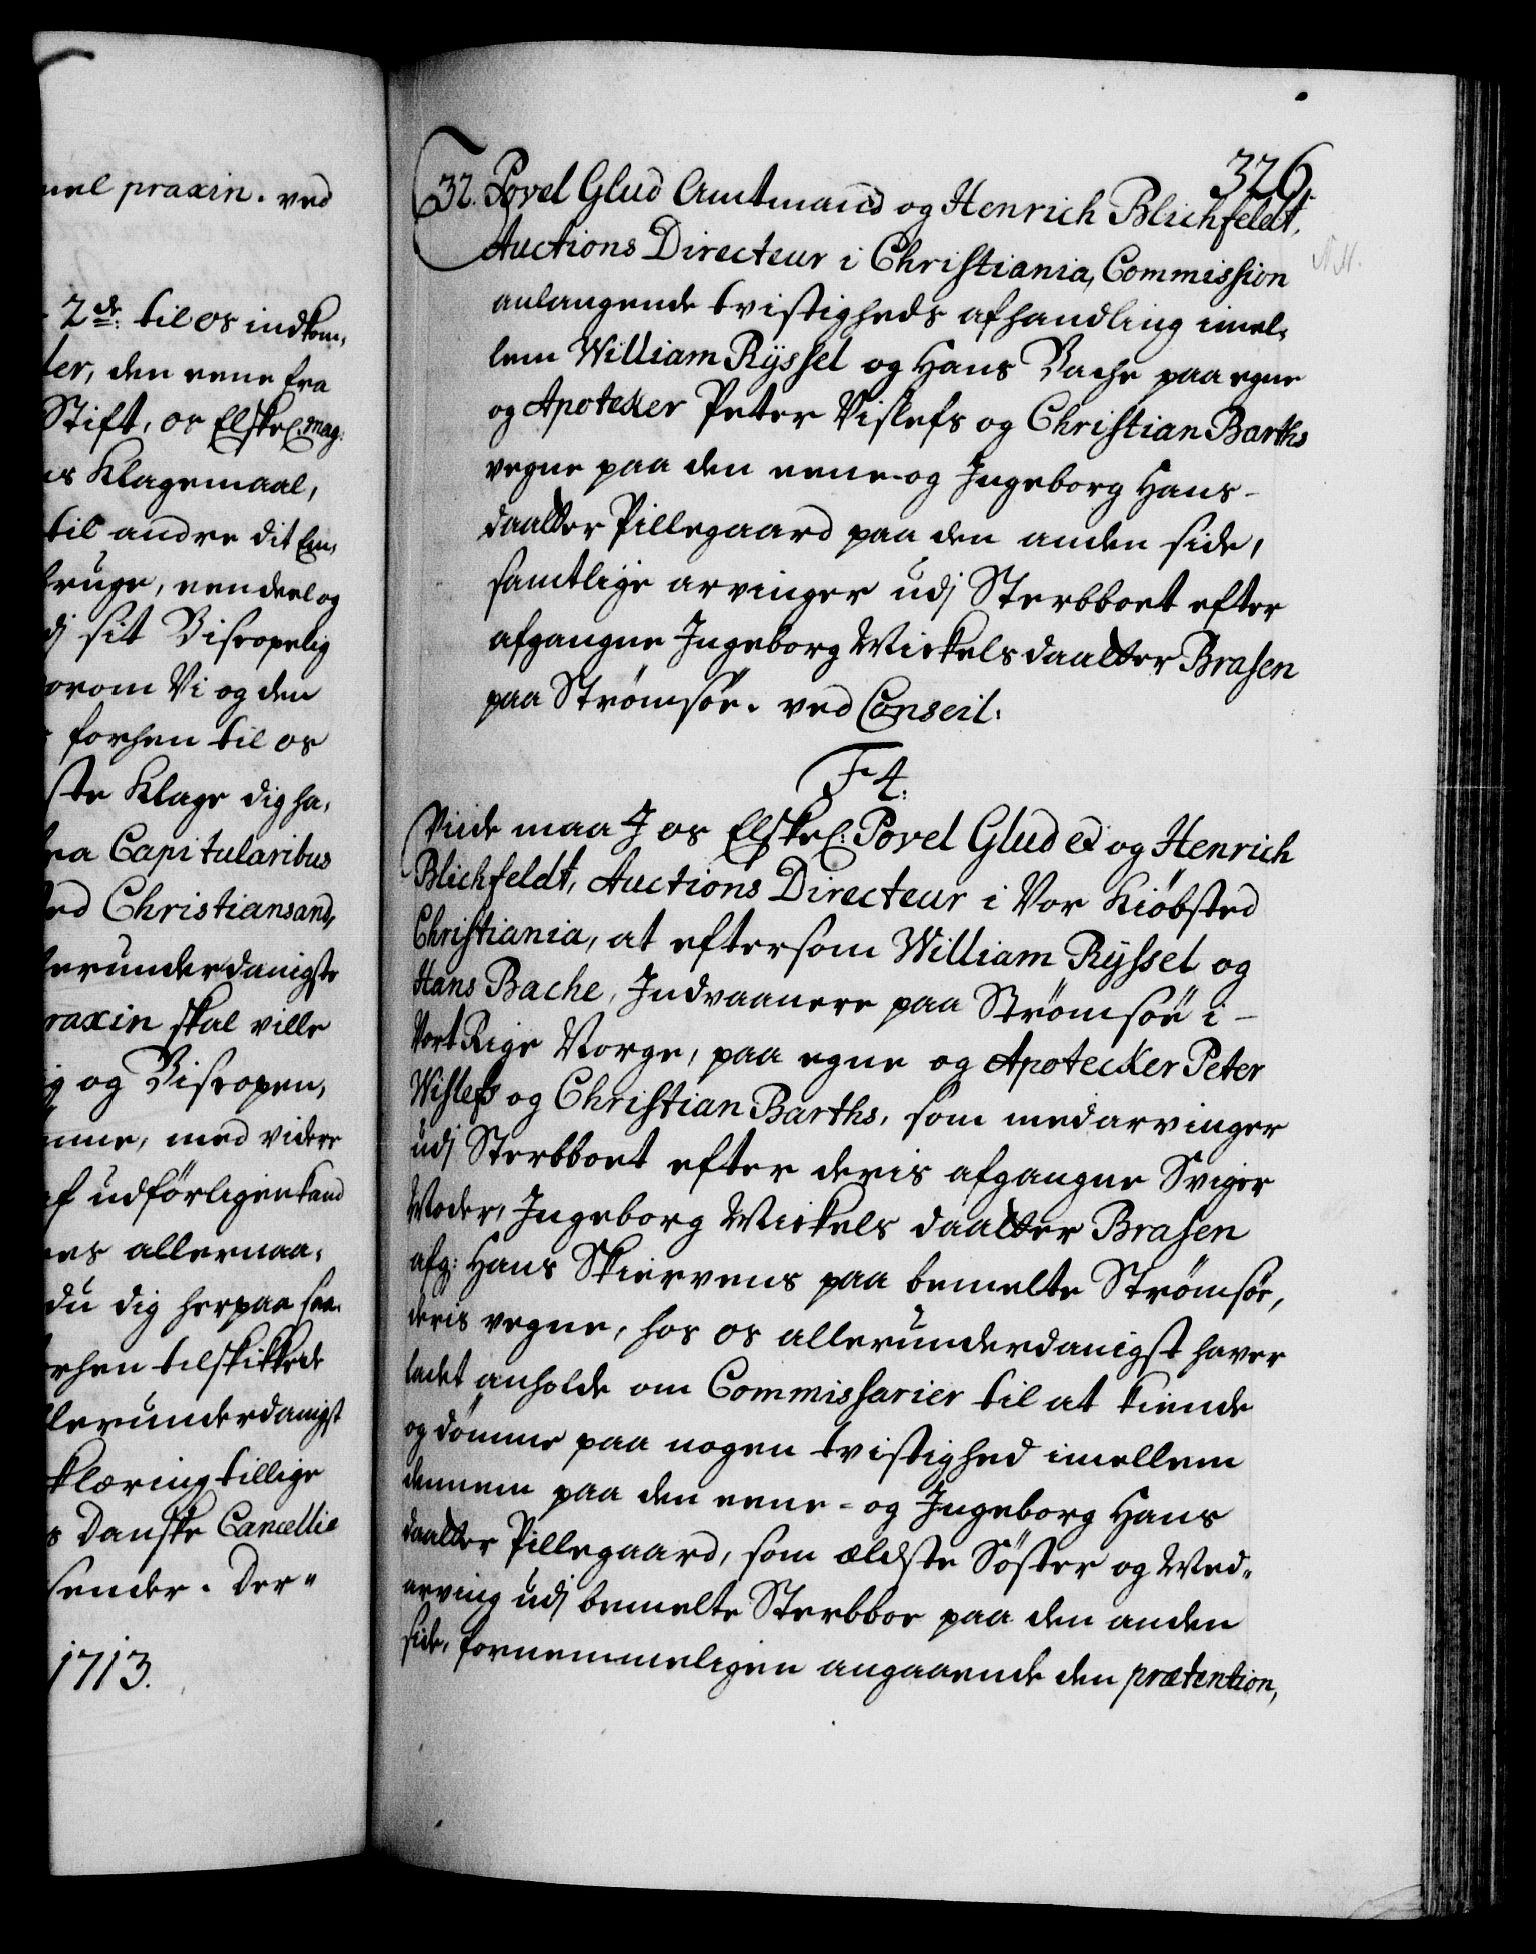 nel praxin. ved
2de: til os indkom,
ter, den eene fra
Stift, os Elskel. mag:
es Klagemaal,
til andre dit Em,
bruge, eendeel og
dj sit Biscopelig
orom Vi og den
forhen til os
ste Klage dig ha,
fra Capitularibus
ted Christiansand,
lerunderdanigste
raxin skal ville
ig og Biscopen,
mme, med videre
af udförligen kand
es allernaa,
du dig herpaa saa,
rhen tilskikkede
llerunderdanigst
klæring tillige
s Danske Cancellie
sender. Der"
1713.
326.
32. Povel Glud Amtmand og Henrich Blichfeldt,
Auctions Directeur i Christiania, Commission
anlangende tvistigheds afhandling imel,
lem William Rÿssel og Hans Bache paa egne
og Apoteker Peter Vislefs og Christian Barths
vegne paa den eene og Ingeborg Hans-
daatter Pillegaard paa den anden side,
samtlige arvinger udj Sterbboet efter
afgangne Ingeborg Mickels daatter Brasen
paa Strömsöe. ved Conseil.
F 4.
Viide maa J os Elskel: Povel Glud ex og Henrich
Blichfeldt, Auctions Directeur i Vor Kiöbsted
Christiania, at eftersom William Rÿssel og
Hans Bache, Indvaanere paa Strömsöe i-
Vort Rige Norge, paa egne og Apotecker Peter
Wislefs og Christian Barths, som medarvinger
udj Sterbboet efter deris afgangne Sviger
Moder, Ingeborg Mickels daatter Brasen
afg: Hans Skiervens paa bemelte Strömsöe,
deris vegne, hos os allerunderdanigst haver
ladet anholde om Commissarier til at kiende
og dömme paa nogen tvistighed imellem
dennem paa den eene- og Ingeborg Hans
daatter Pillegaard, som ældste Söster og Med,
arving udj bemelte Sterbboe paa den anden
side, fornemmeligen angaaende den prætention,